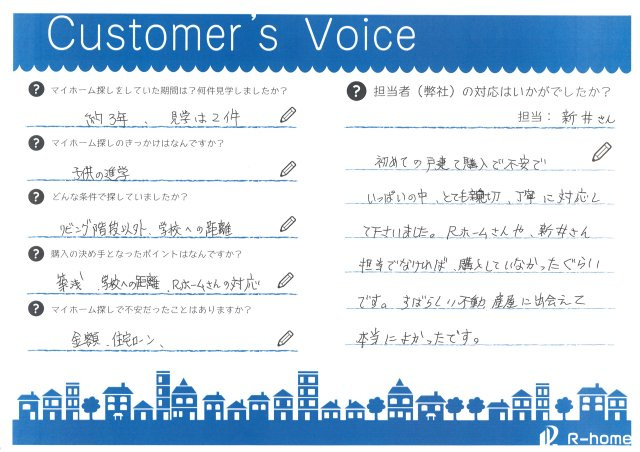 Customer's Voice
? マイホーム探しをしていた期間は？何件見学しましたか？
約3年、 見学は2件
? マイホーム探しのきっかけはなんですか？
子供の進学
? どんな条件で探していましたか？
リビング階段以外、学校への距離
? 購入の決め手となったポイントはなんですか？
築浅、学校への距離、Rホームさんの対応
? マイホーム探しで不安だったことはありますか？
金額、住宅ローン、
? 担当者（弊社）の対応はいかがでしたか？
担当： 新井さん
初めての戸建て購入で不安で
いっぱいの中、とても親切、丁寧に対応し
て下さいました。Rホームさんや、新井さん
担当でなければ、購入していなかったぐらい
です。すばらしい不動産屋に出会えて
本当によかったです。
R-home